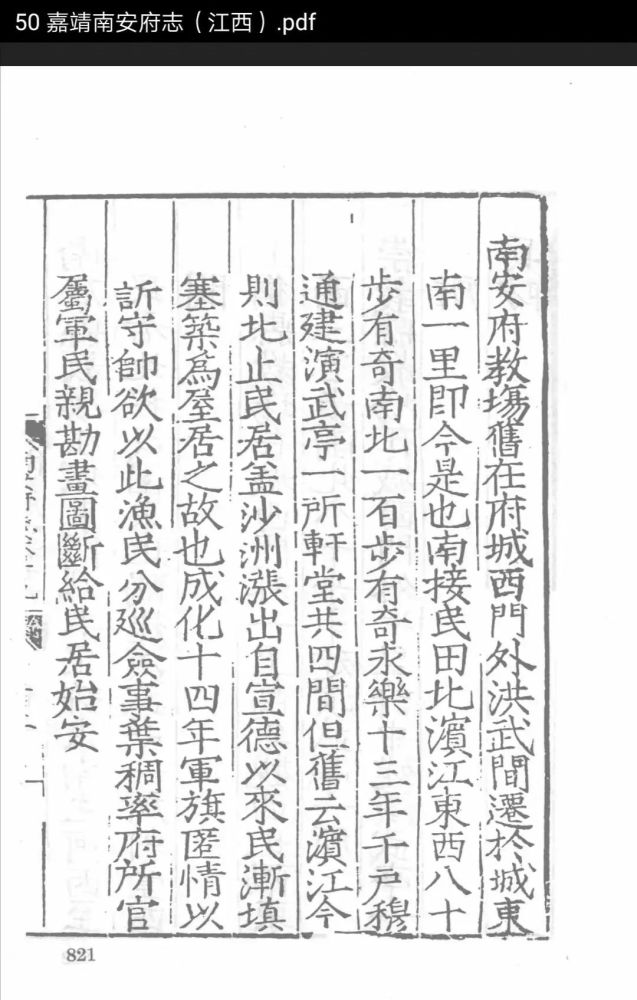 50 嘉靖南安府志（江西）.pdf
南安府教場舊在府城西門外洪武間遷於城東
南一里即今是也南接民田北濵江東西八十
步有奇南北一百步有奇永樂十三年千戸穆
通建演武亭一所軒堂共四間但舊云濵江今
則北止民居盖沙洲漲出自宣德以來民漸填
塞築爲屋居之故也成化十四年軍旗匿情以
訢守帥欲以此漁民分廵僉事葉稠率府所官
屬軍民親勘畫圖斷給民居始安
821